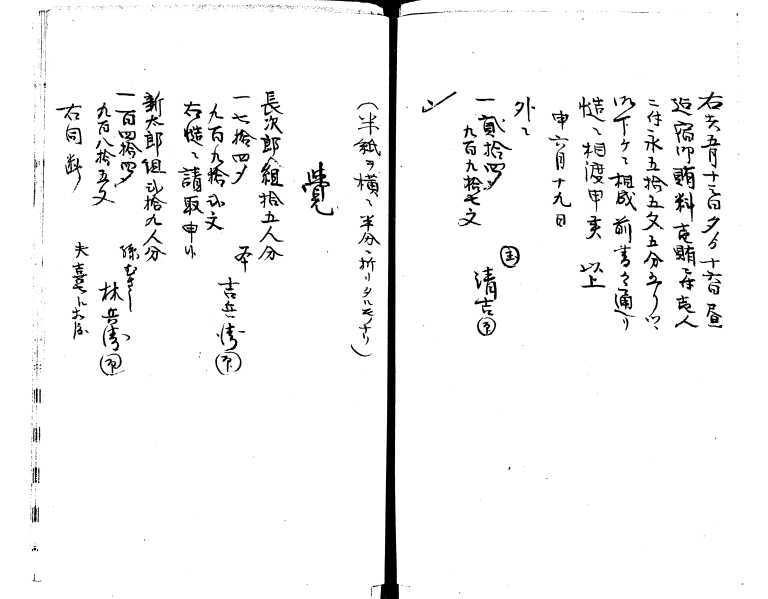 右者五月十三日夕ゟ十六日昼
迄宿御賄料壱賄ニ付壱人
ニ付永五拾五文五分五りつゝ
御下ケニ相成前書之通り
慥ニ相渡申候 以上
申六月十九日
外ニ
一貳拾四〆
九百九拾七文
清吉㊞
(半紙ヲ横ニ半分ニ折リタルモノナリ)
覺
長次郎組拾五人分
一七拾四〆
九百九拾弐文
吉兵衛㊞
右慥ニ請取申候
新太郎組弐拾九人分
一百四拾四〆
九百八拾五文
林兵衛㊞
右同断